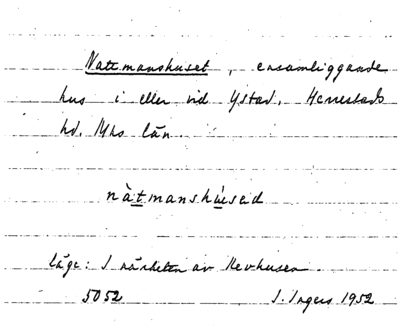 Nattmanshuset, ensamliggande
hus i eller vid Ystad, Herrestads
hd. Mhs län
nàtmanshúsed
läge: I närheten av Revhusen
5052 I. Ingers 1952